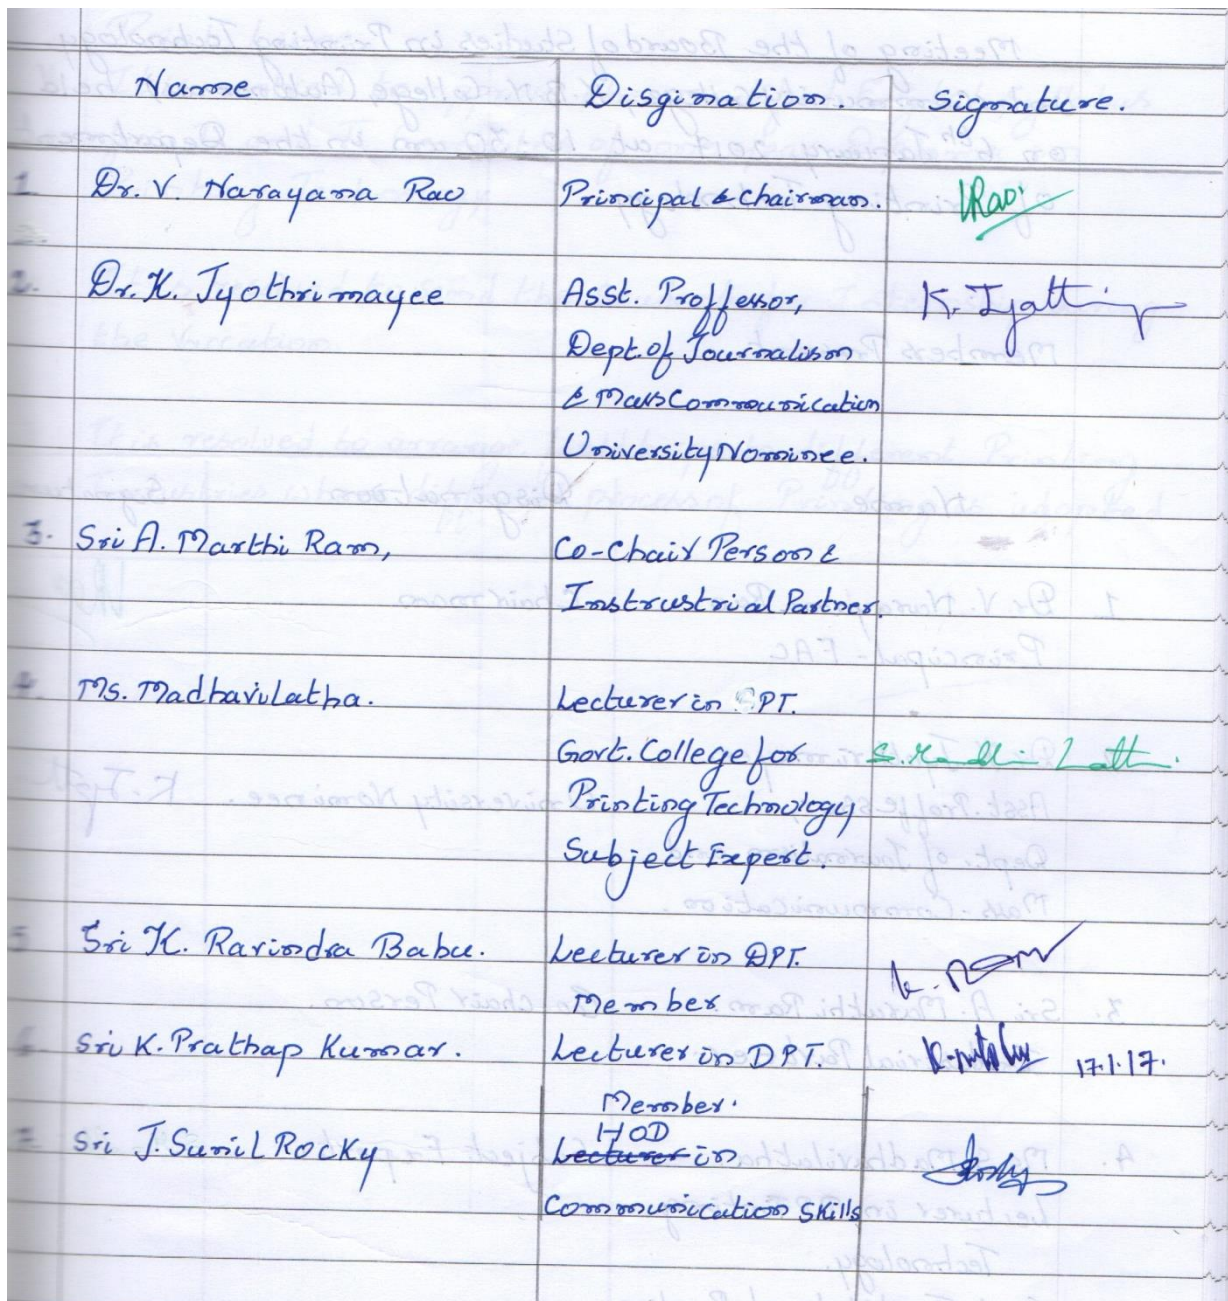 Name Disgination. Signature.
1. Dr. V. Narayana Rao Principal & Chairman. VRao
2. Dr. K. Jyothrimayee Asst. Proffessor, K. Jyatti
Dept. of Journalism
& Mass Communication
University Nominee.
3. Sri A. Marthi Ram, Co-Chair Person &
Instrustrial Partner.
4. Ms. Madhavilatha. Lecturer in PT.
Govt. College for
Printing Technology
Subject Expert.
5. Sri K. Ravindra Babu. Lecturer in DPT.
Member
6. Sri K. Prathap Kumar. Lecturer in DPT. 17.1.17.
Member.
HOD
7. Sri J. Sunil Rocky Lecturer in
Communication Skills